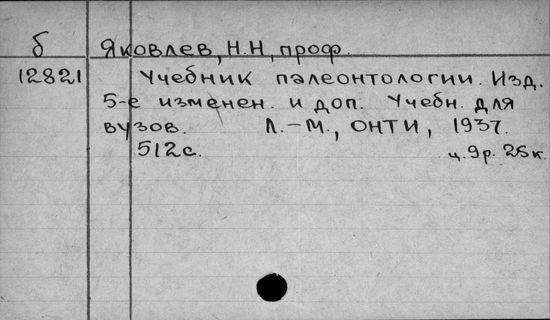 б Яковлев, Н.Н, проф.
12821 Учебник палеонтологии. Изд.
5-е изменен. и доп. Учебн. для
вузов. Л.-М., ОНТИ, 1937.
512с. ц. 9р. 25к.